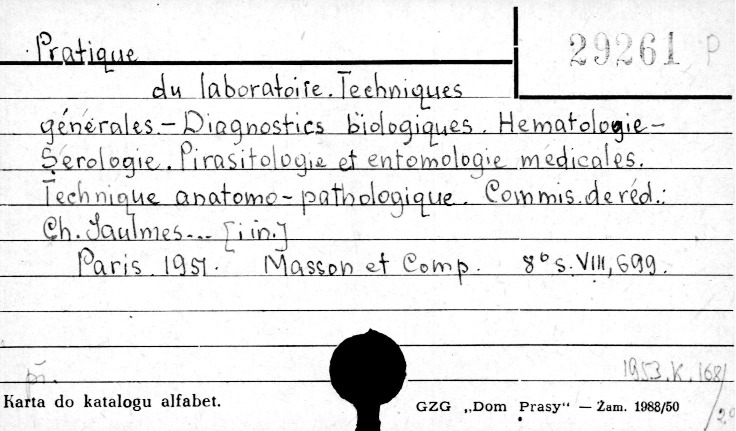 Pratique
29261 P
du laboratoire. Techniques
générales. – Diagnostics biologiques. Hematologie –
Serologie. Pirasitologie et entomologie médicales.
Technique anatomo-pathologique. Commis. de réd.:
Ch. Jaulmes... [i in.]
Paris. 1951. Masson et Comp. 8° s. VIII, 699.
1953. K. 168/
Karta do katalogu alfabet.
GZG „Dom Prasy“ — Zam. 1988/50